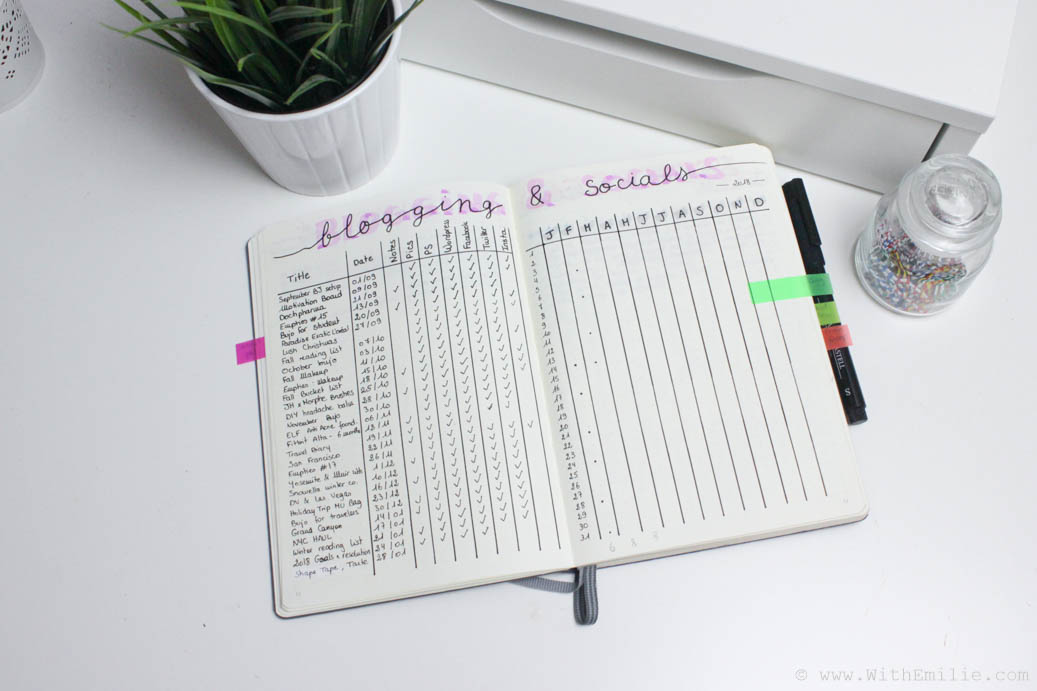 blogging & socials
2018
Title Date Notes Pics PS Wordpress Facebook Twitter Insta
September BJ setup 01/09
Motivation Board 09/09
Docipharma 11/09
Empties #15 13/09
Bujo for student 20/09
Paradise Exotic 27/09
Lush Christmas
Fall reading list
October bujo
Fall Makeup
Empties Makeup
Fall Bucket list
JH x Morphe Brushes
DIY headache balm
November Bujo
ELF Anti Acne found.
Fitbit Alta - 6 months
Travel Diary
San Francisco
Empties #17
Yosemite &
winter co.
DV & Las Vegas
Holiday Trip MU Bag
Bujo for travelers
Grand Canyon
NYC HAUL
Winter reading list
2018 Goals & resolution
Shape Tape, Tarte
07/10
03/10
11/10
15/10
18/10
25/10
28/10
30/10
06/11
12/11
19/11
22/11
26/11
1/12
10/12
16/12
23/12
30/12
14/01
17/01
21/01
24/01
28/01
J F M A M J J A S O N D
1
2
3
4
5
6
7
8
9
10
11
12
13
14
15
16
17
18
19
20
21
22
23
24
25
26
27
28
29
30
31
6 8 3
S
© www.WithEmilie.com